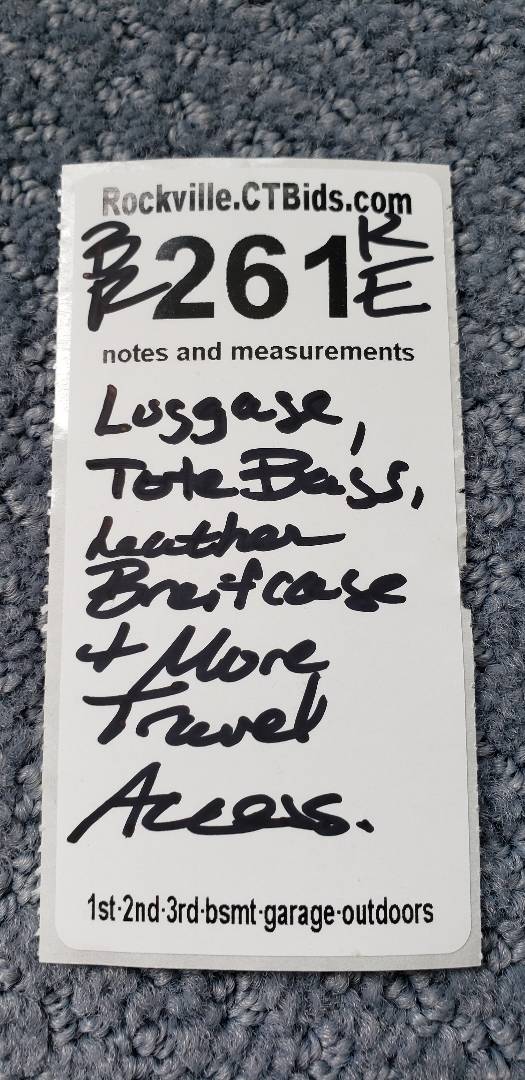 Rockville.CTBids.com
BR 261 KE
notes and measurements
Luggage,
Tote Bags,
Leather
Breifcase
+ More
Travel
Access.
1st·2nd·3rd·bsmt·garage·outdoors